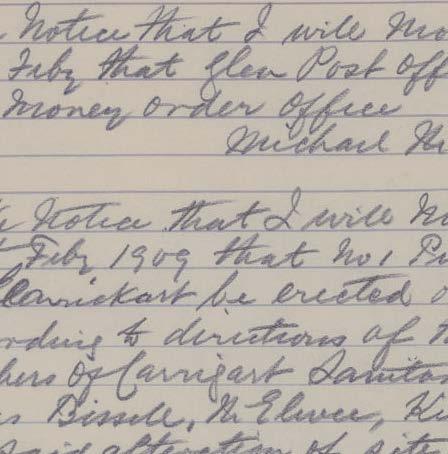 Notice that I will Mo
Feby that Glen Post Off
Money order office
Michael
Notice that I will
Feby 1909 that No 1
Carrickart be erected
rding to directions of
bers of Carrigart Sanita
Bissele, McElwee,
said alteration of site